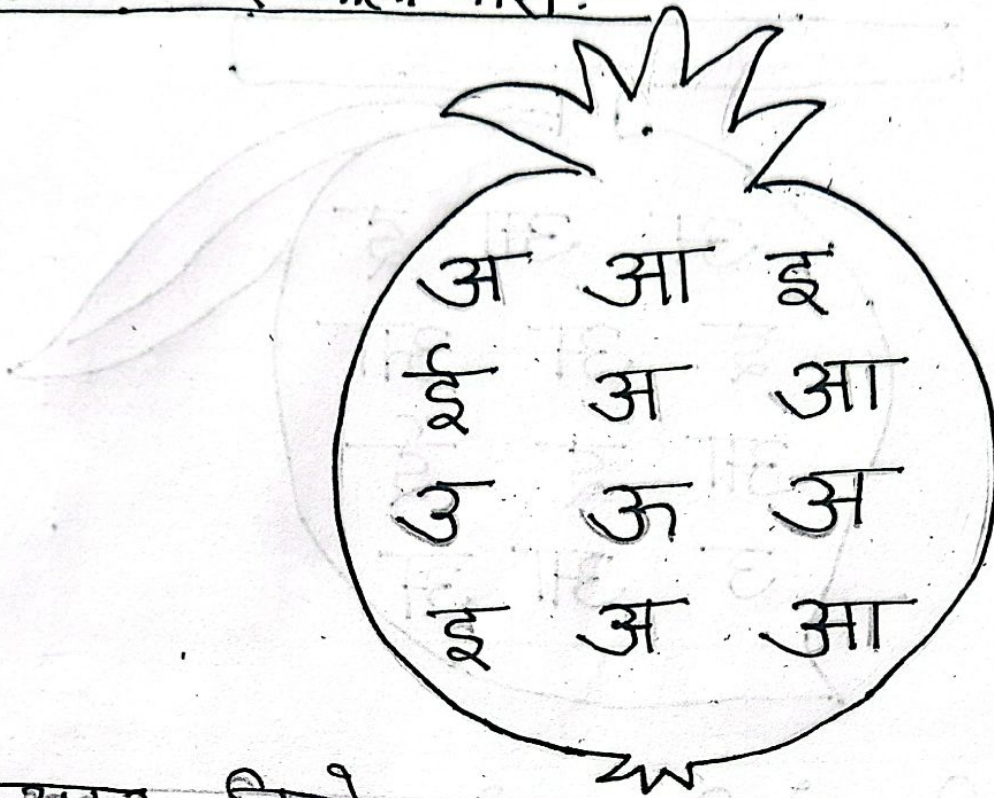 अ आ इ
ई अ आ
उ ऊ अ
इ अ आ